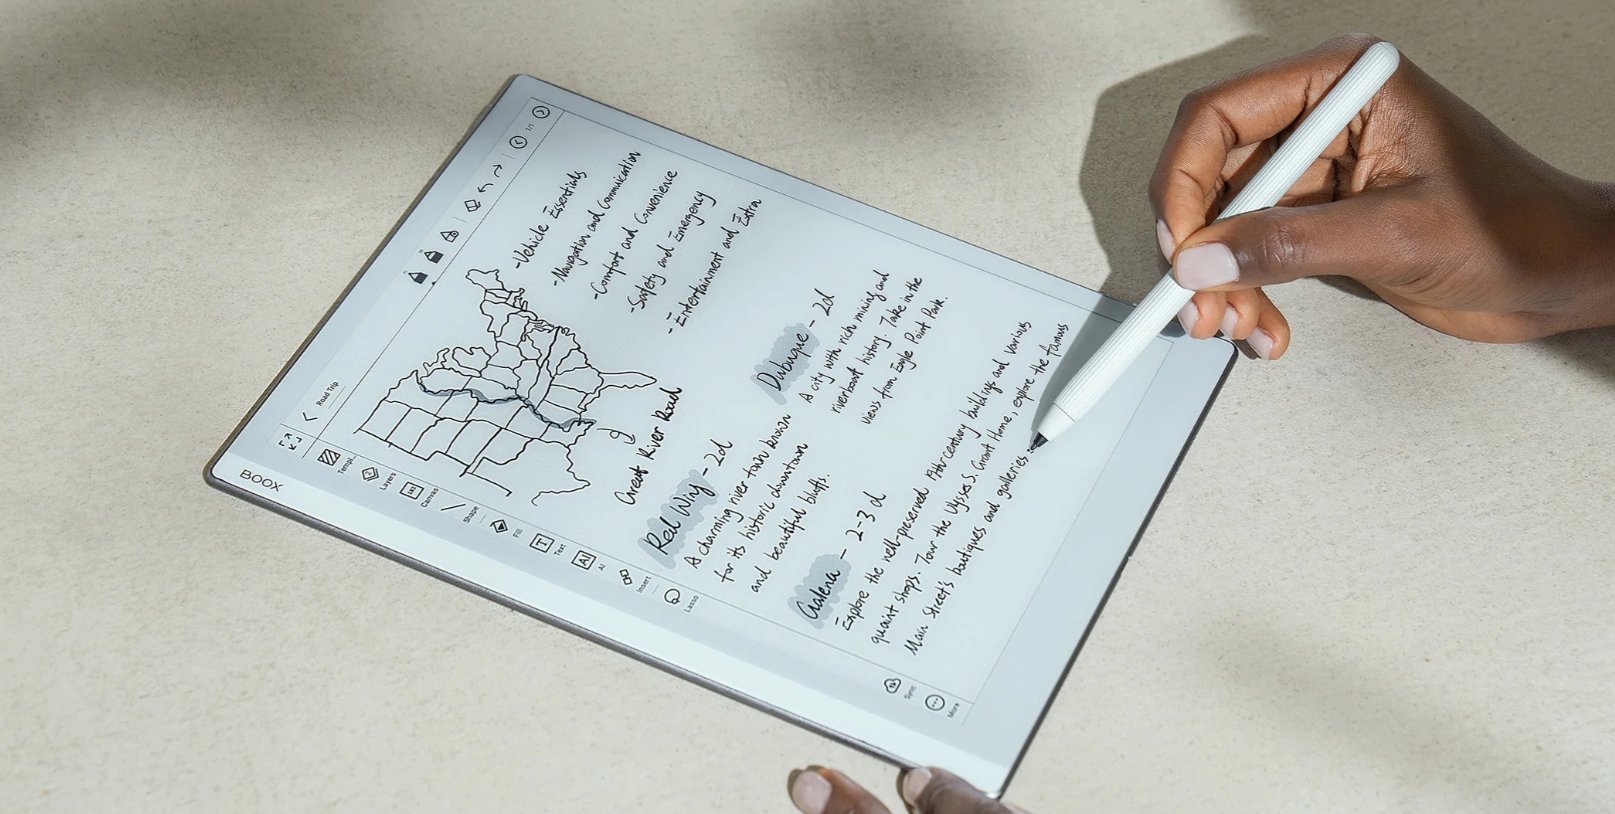 BOOX
Road Trip
1/1
Templ..
Layers
Canvas
Shape
Fill
Text
AI
Insert
Lasso
Sync
More
-Vehicle Essentials
-Navigation and Communication
-Comfort and Convenience
-Safety and Emergency
-Entertainment and Extra
Great River Road
Red Wing - 2d
A charming river town known
for its historic downtown
and beautiful bluffs.
Dubuque - 2d
A city with rich mining and
riverboat history. Take in the
views from Eagle Point Park.
Galena - 2-3 d
Explore the well-preserved 19th-century buildings and various
quaint shops. Tour the Ulysses S. Grant Home, explore the famous
Main Street's boutiques and galleries.